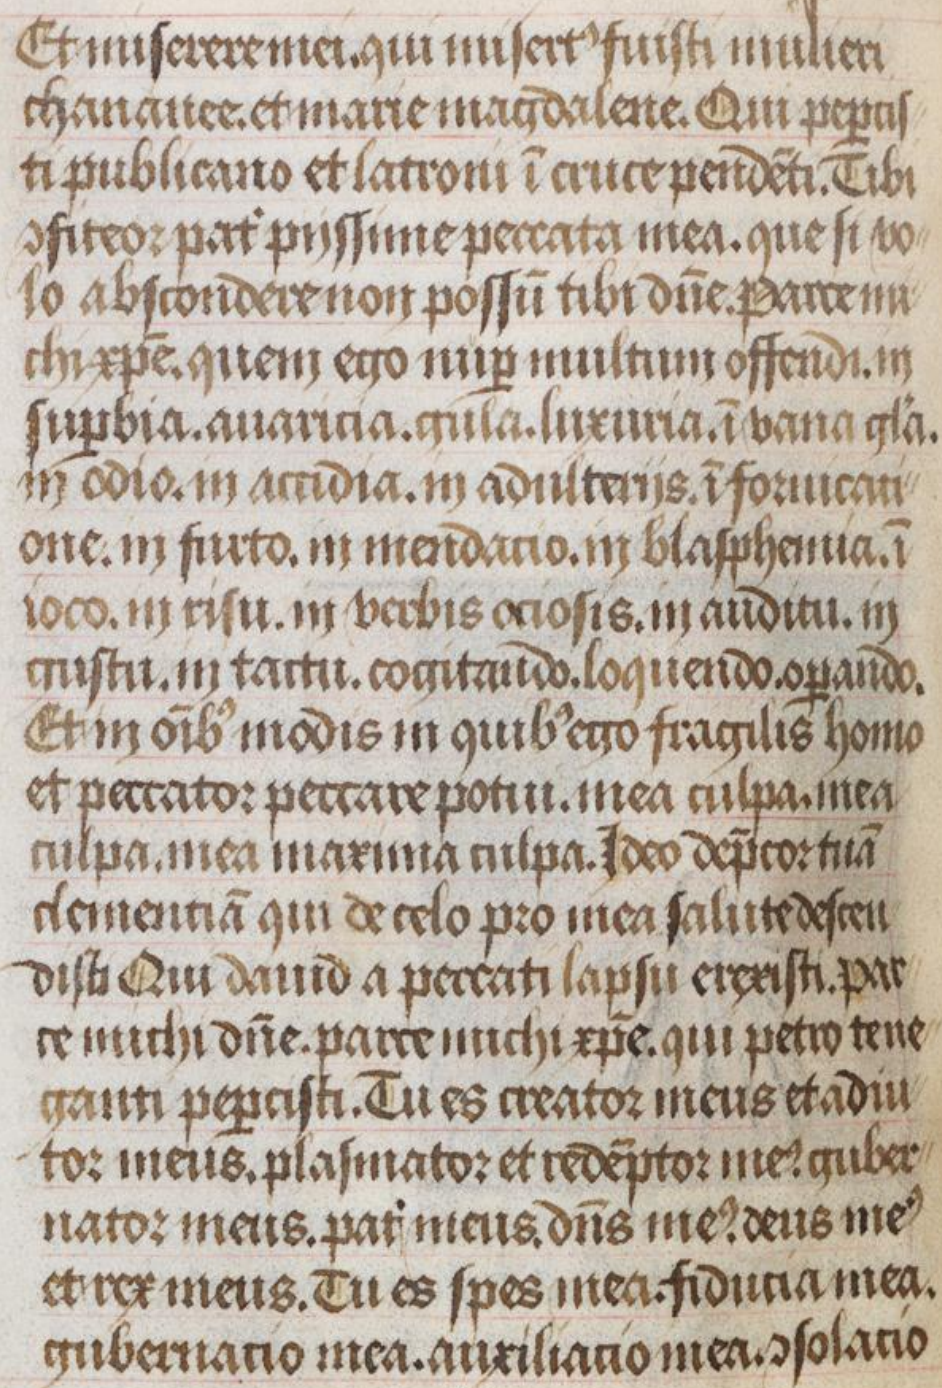 Et miserere mei. qui misertꝰ fuisti mulieri
chananee. et marie magdalene. Qui peꝑcis
ti publicano et latroni ī cruce pendēti. Tibi
ꝯfiteor pat͛ piissime peccata mea. que si vo
lo abscondere non possū tibi dn̄e. Parce mi
chi xp̄e. quem ego nuꝑ multum offendi. in
suꝑbia. auaricia. gula. luxuria. ī vana gl̄a.
in odio. in accidia. in adulterijs. ī fornicati
one. in furto. in mendacio. in blasphemia. ī
ioco. in risu. in verbis ociosis. in auditu. in
gustu. in tactu. cogitando. loquendo. oꝑando.
Et in oībꝰ modis in quibꝰ ego fragilis homo
et peccator peccare potui. mea culpa. mea
culpa. mea maxima culpa. Ideo dep̄cor tuā
clementiā qui de celo pro mea salute descen
disti Qui dauid a peccati lapsu erexisti. par
ce michi dn̄e. parce michi xp̄e. qui petro te ne
ganti peꝑcisti. Tu es creator meus et adiu
tor meus. plasmator et redēptor meꝰ. guber
nator meus. pat͛ meus. dn̄s meꝰ. deus meꝰ
et rex meus. Tu es spes mea. fiducia mea.
gubernacio mea. auxiliacio mea. ꝯsolacio